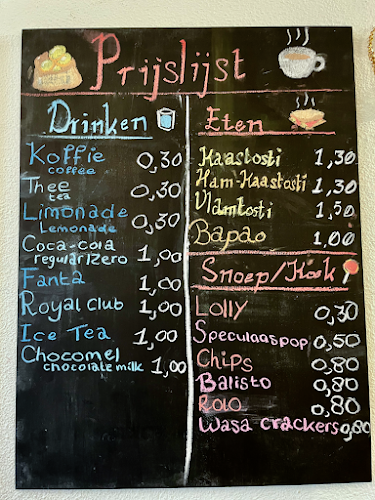 Prijslijst
Drinken
Koffie 0,30
coffee
Thee 0,30
tea
Limonade 0,30
Lemonade
Coca-cola 1,00
regular/zero
Fanta 1,00
Royal Club 1,00
Ice Tea 1,00
Chocomel 1,00
chocolate milk
Eten
Kaastosti 1,30
Ham-Kaastosti 1,30
Vlamtosti 1,50
Bapao 1,00
Snoep/Koek
Lolly 0,30
Speculaaspop 0,50
Chips 0,80
Balisto 0,80
Rolo 0,80
Wasa crackers 0,80